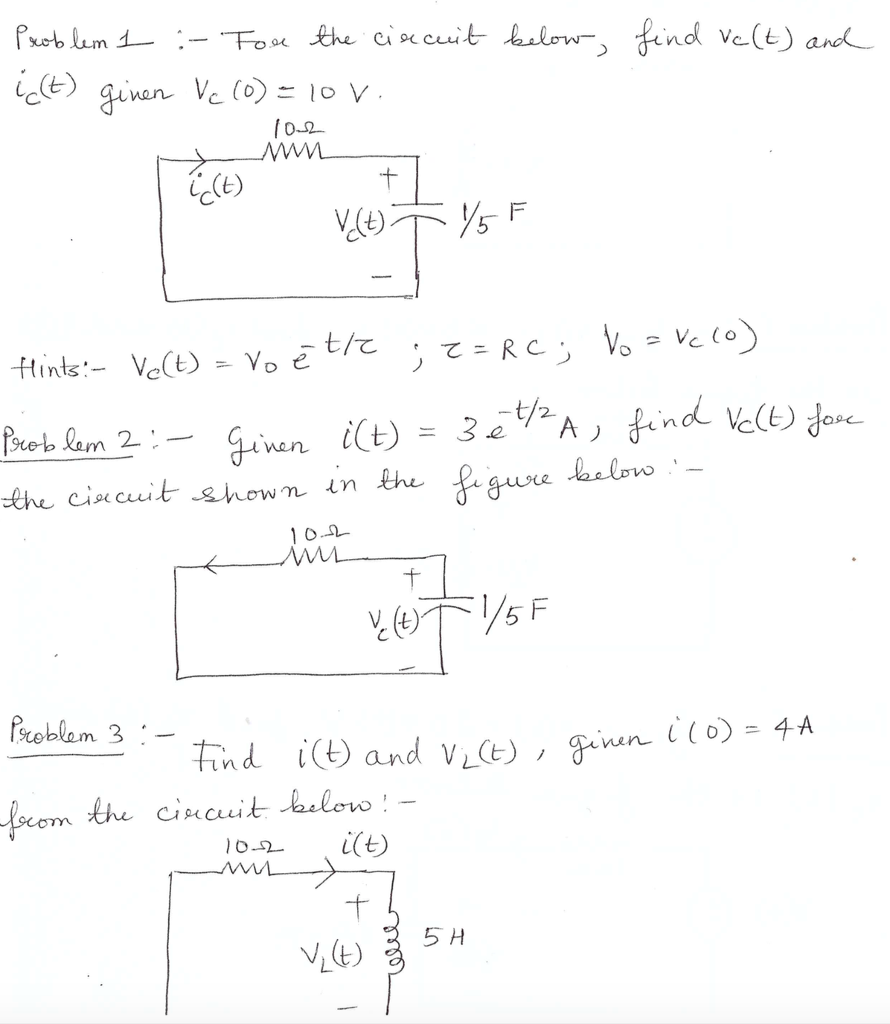 Problem 1 :- For the circuit below, find Vc(t) and
ic(t) given Vc(0) = 10 V.
10Ω
ic(t)
+
Vc(t)
1/5 F
-
Hints:- Vc(t) = V₀ e^-t/τ ; τ = RC ; V₀ = Vc(0)
Problem 2 :- Given i(t) = 3e^-t/2 A, find Vc(t) for
the circuit shown in the figure below :-
10Ω
+
Vc(t)
1/5 F
-
Problem 3 :- Find i(t) and VL(t), given i(0) = 4A
from the circuit below :-
10Ω i(t)
+
VL(t)
5 H
-